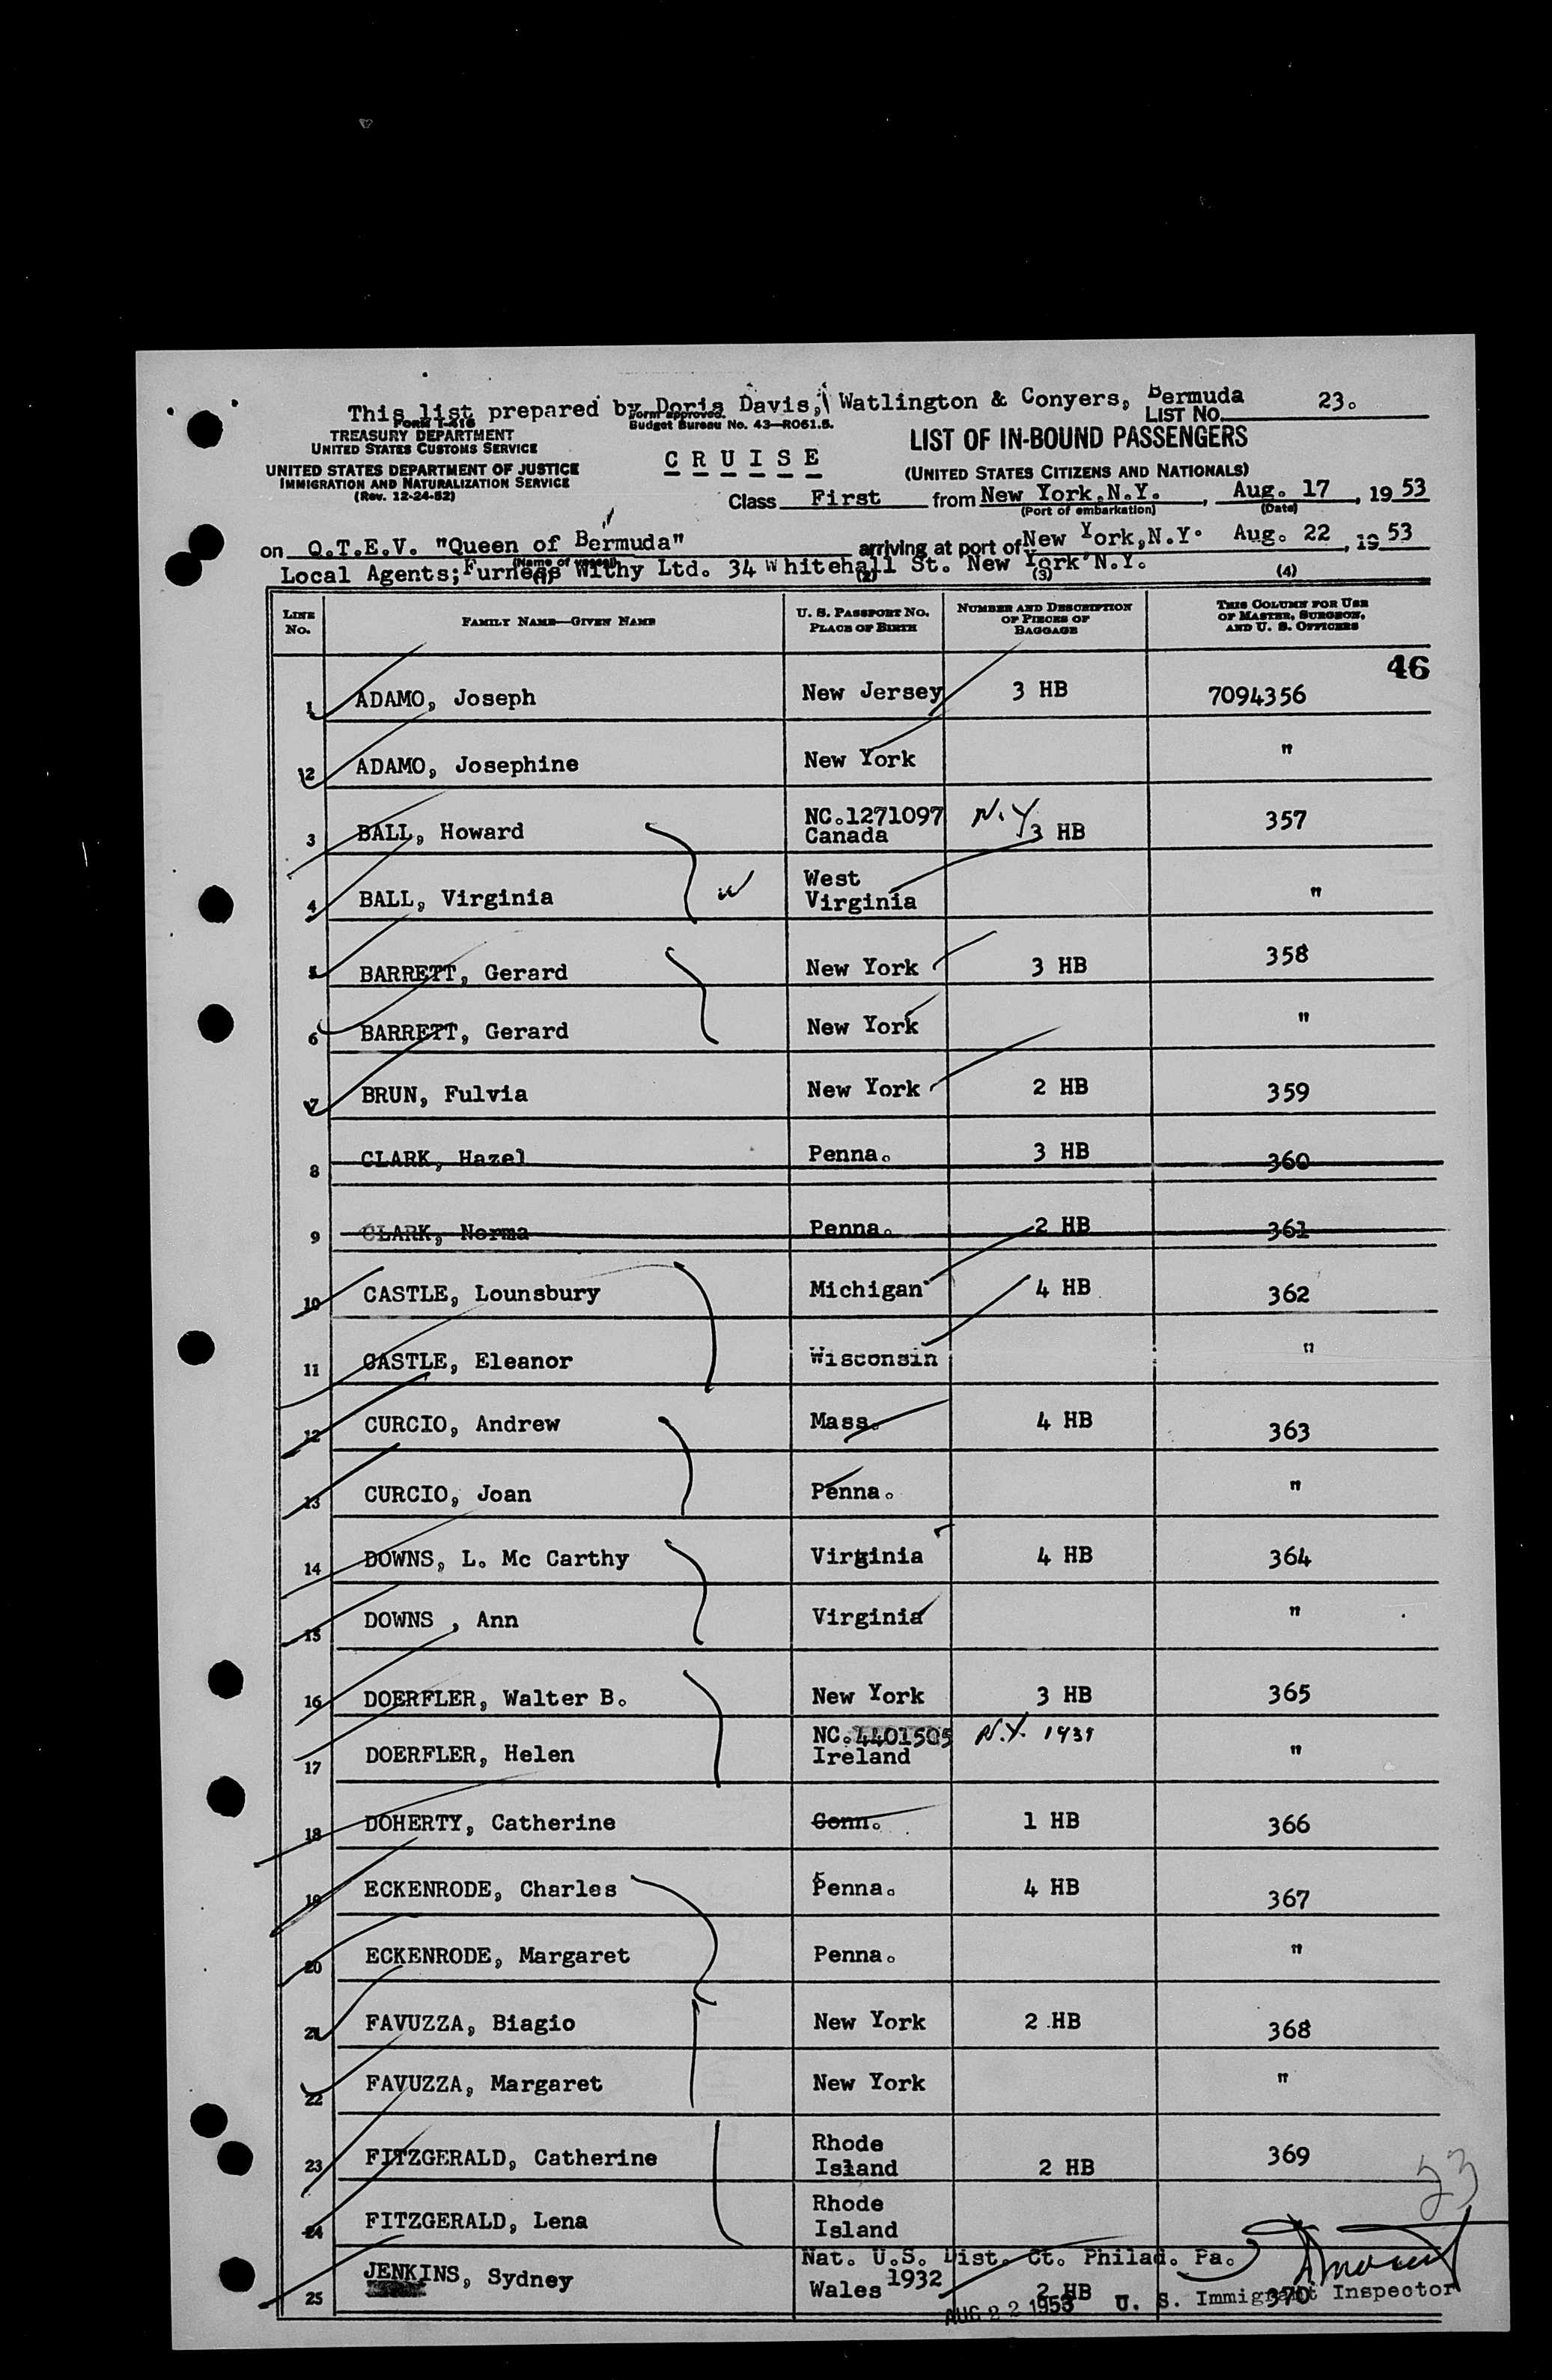 This list prepared by Doris Davis, Watlington & Conyers, Bermuda
FORM I-416
Form approved.
Budget Bureau No. 43—R061.5.
LIST NO. 23.
TREASURY DEPARTMENT
UNITED STATES CUSTOMS SERVICE
UNITED STATES DEPARTMENT OF JUSTICE
IMMIGRATION AND NATURALIZATION SERVICE
(Rev. 12-24-52)
CRUISE
LIST OF IN-BOUND PASSENGERS
(UNITED STATES CITIZENS AND NATIONALS)
Class First from New York, N.Y., Aug. 17, 1953
(Port of embarkation) (Date)
on Q.T.E.V. "Queen of Bermuda" arriving at port of New York, N.Y. Aug. 22, 1953
(Name of vessel)
Local Agents; Furness Withy Ltd. 34 Whitehall St. New York N.Y.
(1) (2) (3) (4)
LINE NO. FAMILY NAME—GIVEN NAME U. S. PASSPORT NO. PLACE OF BIRTH NUMBER AND DESCRIPTION OF PIECES OF BAGGAGE THIS COLUMN FOR USE OF MASTER, SURGEON, AND U. S. OFFICERS
46
1 ADAMO, Joseph New Jersey 3 HB 7094356
2 ADAMO, Josephine New York "
3 BALL, Howard NC.1271097 Canada N.Y 3 HB 357
4 BALL, Virginia West Virginia "
5 BARRETT, Gerard New York 3 HB 358
6 BARRETT, Gerard New York "
7 BRUN, Fulvia New York 2 HB 359
8 CLARK, Hazel Penna. 3 HB 360
9 CLARK, Norma Penna. 2 HB 361
10 CASTLE, Lounsbury Michigan 4 HB 362
11 CASTLE, Eleanor Wisconsin "
12 CURCIO, Andrew Mass. 4 HB 363
13 CURCIO, Joan Penna. "
14 DOWNS, L. Mc Carthy Virginia 4 HB 364
15 DOWNS , Ann Virginia "
16 DOERFLER, Walter B. New York 3 HB 365
17 DOERFLER, Helen NC.4401505 Ireland N.Y. 1939 "
18 DOHERTY, Catherine Conn. 1 HB 366
19 ECKENRODE, Charles Penna. 4 HB 367
20 ECKENRODE, Margaret Penna. "
21 FAVUZZA, Biagio New York 2 HB 368
22 FAVUZZA, Margaret New York "
23 FITZGERALD, Catherine Rhode Island 2 HB 369
24 FITZGERALD, Lena Rhode Island
53
Nat. U.S. Dist. Ct. Philad. Pa.
25 JENKINS, Sydney Wales 1932 2 HB 370
AUG 22 1953 U. S. Immigrant Inspector